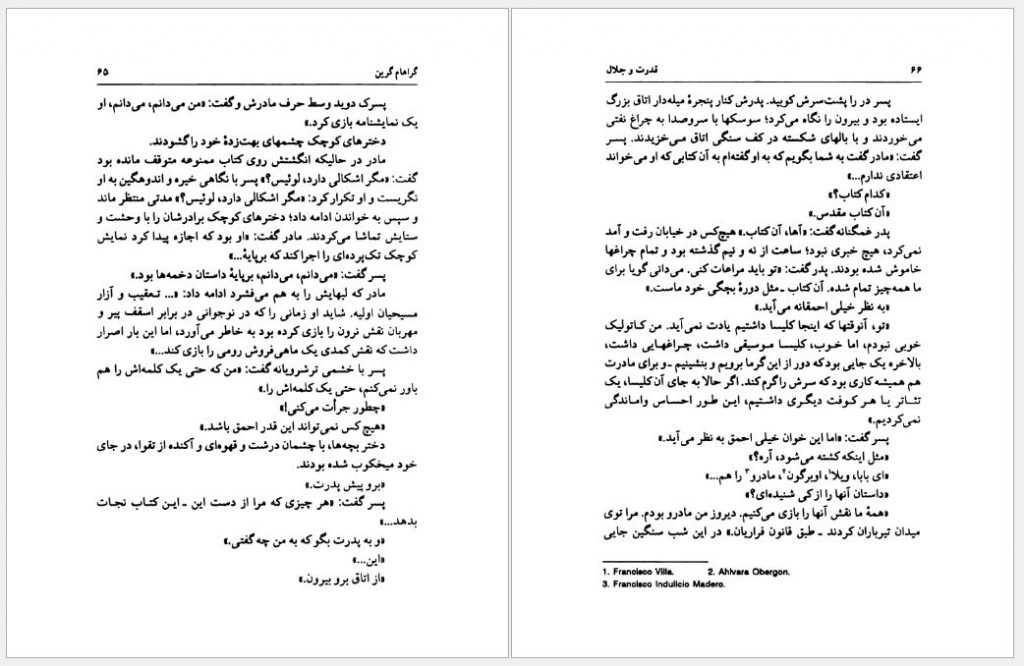 گراهام گرین ۶۵
پسرک دوید وسط حرف مادرش و گفت: «من می‌دانم، می‌دانم، او
یک نمایشنامه بازی کرد.»
دخترهای کوچک چشمهای بهت‌زدهٔ خود را گشودند.
مادر در حالیکه انگشتش روی کتاب ممنوعه متوقف مانده بود
گفت: «مگر اشکالی دارد، لوئیس؟» پسر با نگاهی خیره و اندوهگین به او
نگریست و او تکرار کرد: «مگر اشکالی دارد، لوئیس؟» مدتی منتظر ماند
و سپس به خواندن ادامه داد؛ دخترهای کوچک برادرشان را با وحشت و
ستایش تماشا می‌کردند. مادر گفت: «او بود که اجازه پیدا کرد نمایش
کوچک تک‌پرده‌ای را اجرا کند که برپایهٔ...»
پسر گفت: «می‌دانم، می‌دانم، برپایهٔ داستان دخمه‌ها بود.»
مادر که لبهایش را به هم می‌فشرد ادامه داد: «... تعقیب و آزار
مسیحیان اولیه. شاید او زمانی را که در نوجوانی در برابر اسقف پیر و
مهربان نقش نرون را بازی کرده بود به خاطر می‌آورد، اما این بار اصرار
داشت که نقش کمدی یک ماهی‌فروش رومی را بازی کند...»
پسر با خشمی ترشرویانه گفت: «من که حتی یک کلمه‌اش را هم
باور نمی‌کنم، حتی یک کلمه‌اش را.»
«چطور جرأت می‌کنی!»
«هیچ کس نمی‌تواند این قدر احمق باشد.»
دختر بچه‌ها، با چشمان درشت و قهوه‌ای و آکنده از تقوا، در جای
خود میخکوب شده بودند.
«برو پیش پدرت.»
پسر گفت: «هر چیزی که مرا از دست این ـ این کتاب نجات
بدهد...»
«و به پدرت بگو که به من چه گفتی.»
«این...»
«از اتاق برو بیرون.»
۶۶ قدرت و جلال
پسر در را پشت سرش کوبید. پدرش کنار پنجرهٔ میله‌دار اتاق بزرگ
ایستاده بود و بیرون را نگاه می‌کرد؛ سوسکها با سروصدا به چراغ نفتی
می‌خوردند و با بالهای شکسته در کف سنگی اتاق می‌خزیدند. پسر
گفت: «مادر گفت به شما بگویم که به او گفته‌ام به آن کتابی که او می‌خواند
اعتقادی ندارم...»
«کدام کتاب؟»
«آن کتاب مقدس.»
پدر غمگنانه گفت: «آها، آن کتاب.» هیچ‌کس در خیابان رفت و آمد
نمی‌کرد، هیچ خبری نبود؛ ساعت از نه و نیم گذشته بود و تمام چراغها
خاموش شده بودند. پدر گفت: «تو باید مراعات کنی. می‌دانی گویا برای
ما همه‌چیز تمام شده. آن کتاب ـ مثل دورهٔ بچگی خود ماست.»
«به نظر خیلی احمقانه می‌آید.»
«تو، آنوقتها که اینجا کلیسا داشتیم یادت نمی‌آید. من کاتولیک
خوبی نبودم، اما خوب، کلیسا موسیقی داشت، چراغهایی داشت،
بالاخره یک جایی بود که دور از این گرما برویم و بنشینیم ـ و برای مادرت
هم همیشه کاری بود که سرش را گرم کند. اگر حالا به جای آن کلیسا، یک
تئاتر یا هر کوفت دیگری داشتیم، این طور احساس واماندگی
نمی‌کردیم.»
پسر گفت: «اما این خوان خیلی احمق به نظر می‌آید.»
«مثل اینکه کشته می‌شود، آره؟»
«ای بابا، ویلا۱، اوبرگون۲، مادرو۳ را هم...»
«داستان آنها را از کی شنیده‌ای؟»
«همهٔ ما نقش آنها را بازی می‌کنیم. دیروز من مادرو بودم. مرا توی
میدان تیرباران کردند ـ طبق قانون فراریان.» در این شب سنگین جایی
1. Francisco Villa. 2. Ahlvara Obergon.
3. Francisco Indulicio Madero.